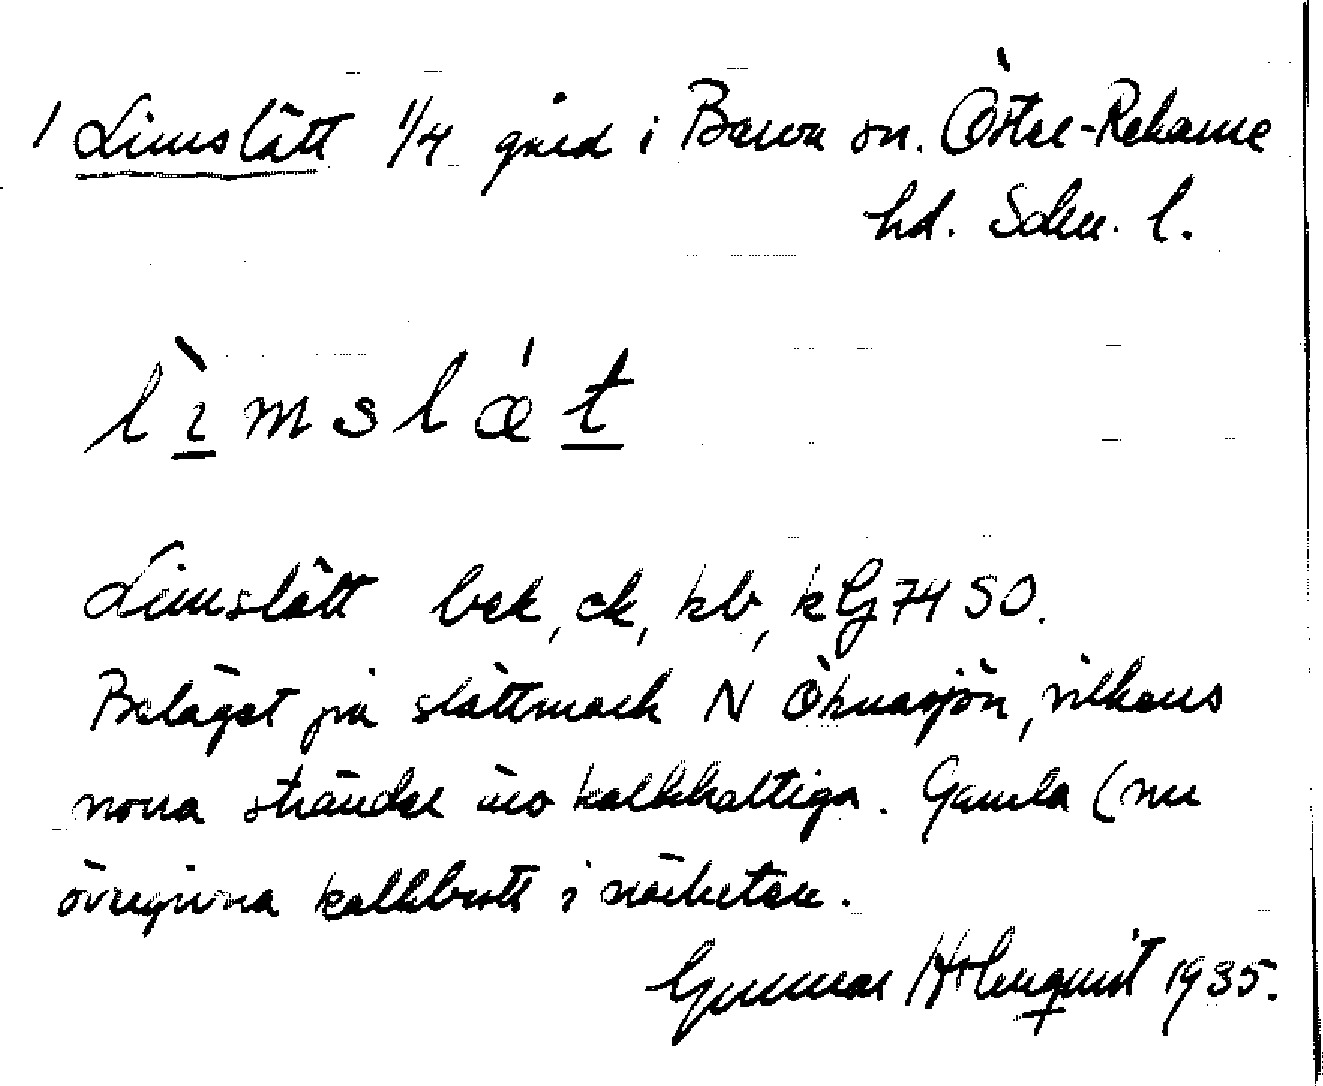 1 Limslätt 1/4 gård i Barva sn. Öster-Rekarne
hd. Söder. l.
lìmslæ̍t
Limslätt bek, ek, kb, kG 74 SO.
Beläget på slättmark N Öknasjön, vilkens
norra stränder äro kalkhaltiga. Gamla (nu
övergivna kalkbrott i närheten.
Gunnar Holmquist 1935.